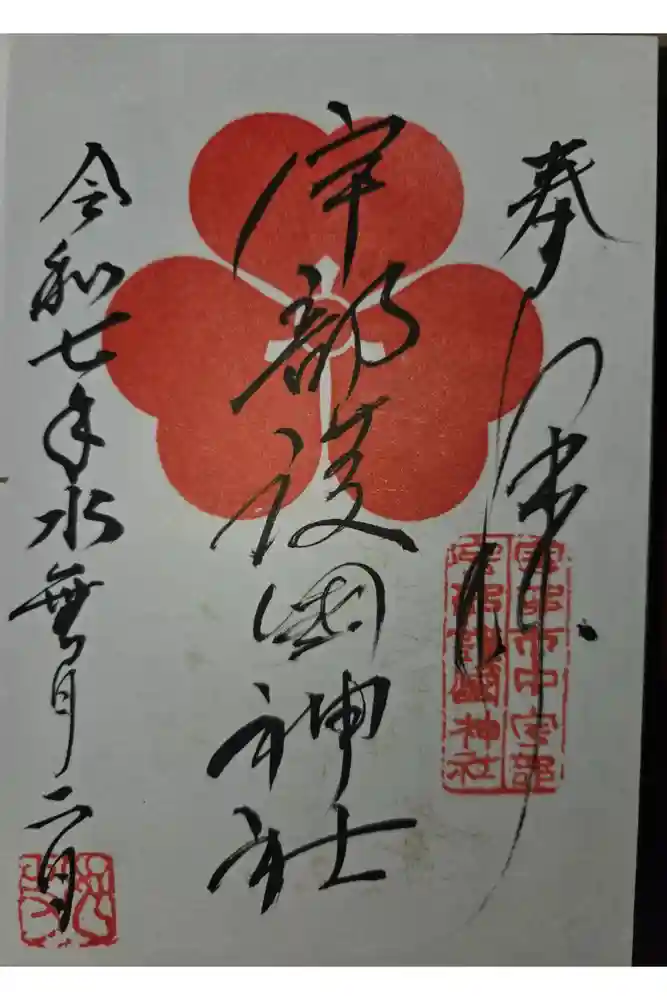 奉拝
宇部護國神社
宇部市中宇部
宇部護國神社
令和七年水無月二日